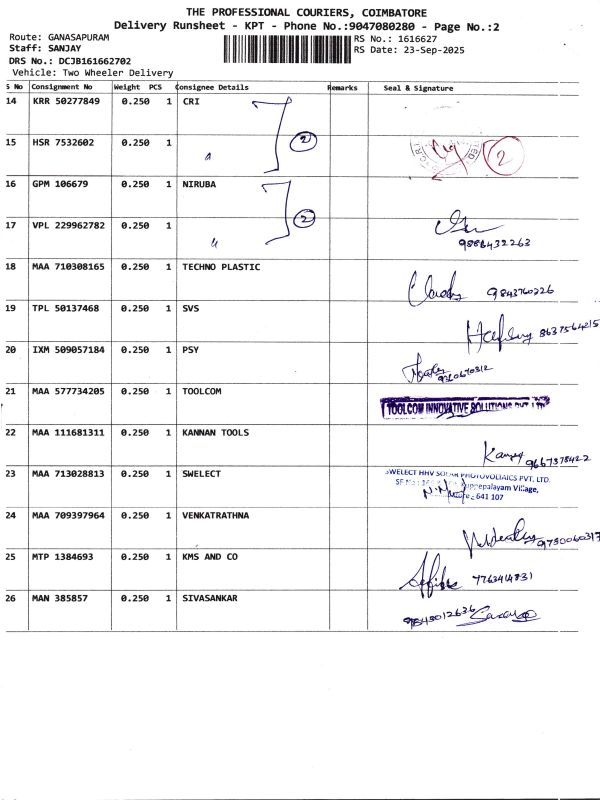 THE PROFESSIONAL COURIERS, COIMBATORE
Delivery Runsheet - KPT - Phone No.:9047080280 - Page No.:2
Route: GANASAPURAM
RS No.: 1616627
Staff: SANJAY
RS Date: 23-Sep-2025
DRS No.: DCJB161662702
Vehicle: Two Wheeler Delivery
S No Consignment No Weight PCS Consignee Details Remarks Seal & Signature
14 KRR 50277849 0.250 1 CRI
2
15 HSR 7532602 0.250 1
2
16 GPM 106679 0.250 1 NIRUBA
2
17 VPL 229962782 0.250 1
9888432263
18 MAA 710308165 0.250 1 TECHNO PLASTIC
9843760226
19 TPL 50137468 0.250 1 SVS
8637564215
20 IXM 509057184 0.250 1 PSY
21 MAA 577734205 0.250 1 TOOLCOM
TOOLCOM INNOVATIVE SOLUTIONS PVT LTD
22 MAA 111681311 0.250 1 KANNAN TOOLS
9667378422
23 MAA 713028813 0.250 1 SWELECT
SWELECT HHV SOLAR PHOTOVOLTAICS PVT. LTD.
Village,
641 107
24 MAA 709397964 0.250 1 VENKATRATHNA
25 MTP 1384693 0.250 1 KMS AND CO
26 MAN 385857 0.250 1 SIVASANKAR
9843012636